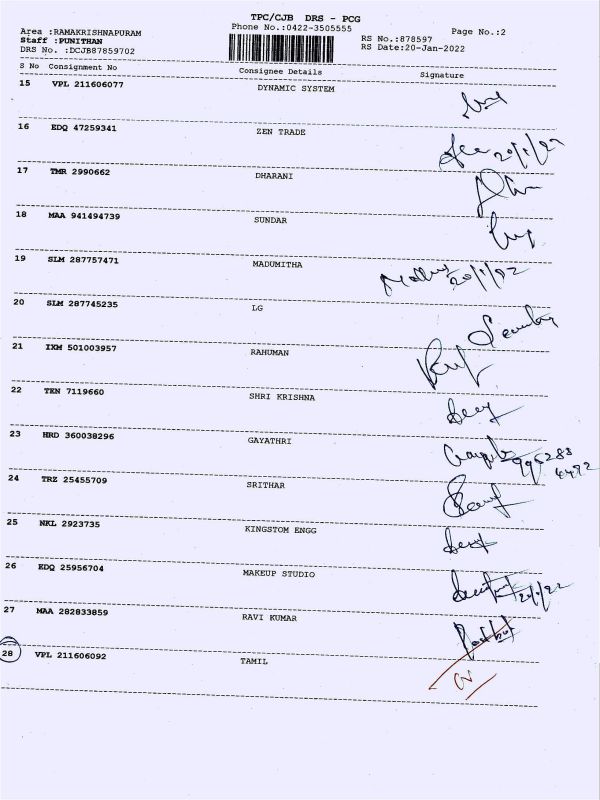 TPC/CJB DRS - PCG
Phone No.:0422-3505555
Page No.:2
Area :RAMAKRISHNAPURAM
Staff :PUNITHAN
DRS No. :DCJB87859702
RS No.:878597
RS Date:20-Jan-2022
S No Consignment No Consignee Details Signature
15 VPL 211606077 DYNAMIC SYSTEM
16 EDQ 47259341 ZEN TRADE
20/1/22
17 TMR 2990662 DHARANI
18 MAA 941494739 SUNDAR
19 SLM 287757471 MADUMITHA
20/1/22
20 SLM 287745235 LG
21 IXM 501003957 RAHUMAN
22 TEN 7119660 SHRI KRISHNA
23 HRD 360038296 GAYATHRI
24 TRZ 25455709 SRITHAR
25 NKL 2923735 KINGSTOM ENGG
26 EDQ 25956704 MAKEUP STUDIO
20/1/22
27 MAA 282833859 RAVI KUMAR
28 VPL 211606092 TAMIL